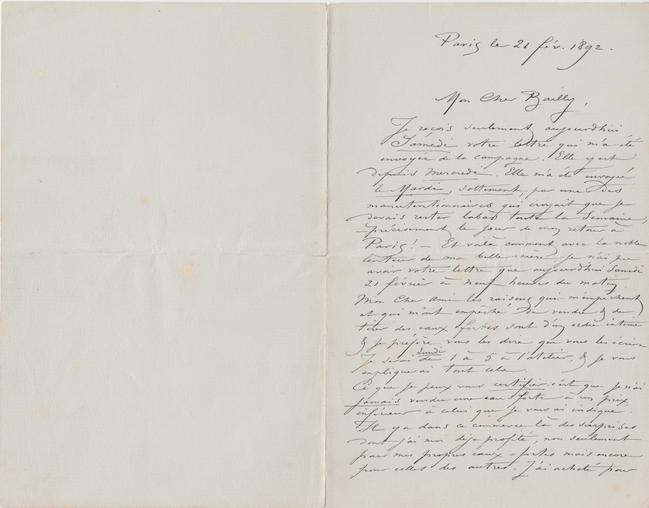 Paris le 21 fév. 1892.
Mon Cher Bailly,
Je reçois seulement aujourdhui
Samedi votre lettre qui m'a été
envoyée de la campagne. Elle y est
depuis Mercredi. Elle m'a été envoyée
le Mardi, sottement, par une des
manutentionnaires qui croyait que je
devais rester labas toute la semaine,
précisement le jour de mon retour à
Paris! — Et voila comment avec la noble
lenteur de ma belle-mère je n'ai pu
avoir votre lettre que aujourdhui Samedi
21 février à neuf heures du matin.
Mon Cher ami les raisons qui m'empêchent
et qui m'ont empêché de vendre & de
tirer des eaux fortes sont d'un ordre intime
& je préfère vous les dire que vous les écrire
Je serai Lundi de 1 à 5 à l'atelier, & je vous
expliquerai tout cela.
Ce que je peux vous certifier c'est que je n'ai
jamais vendu une eau forte à un prix
inférieur à celui que je vous ai indiqué.
Il y a dans ce commerce là des surprises
dont j'ai moi déjà profité, non seulement
pour mes propres eaux-fortes mais encore
pour celles des autres. J'ai acheté pour